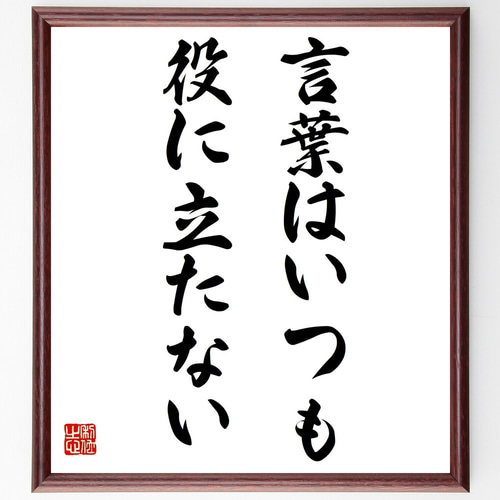 言葉はいつも
役に立たない